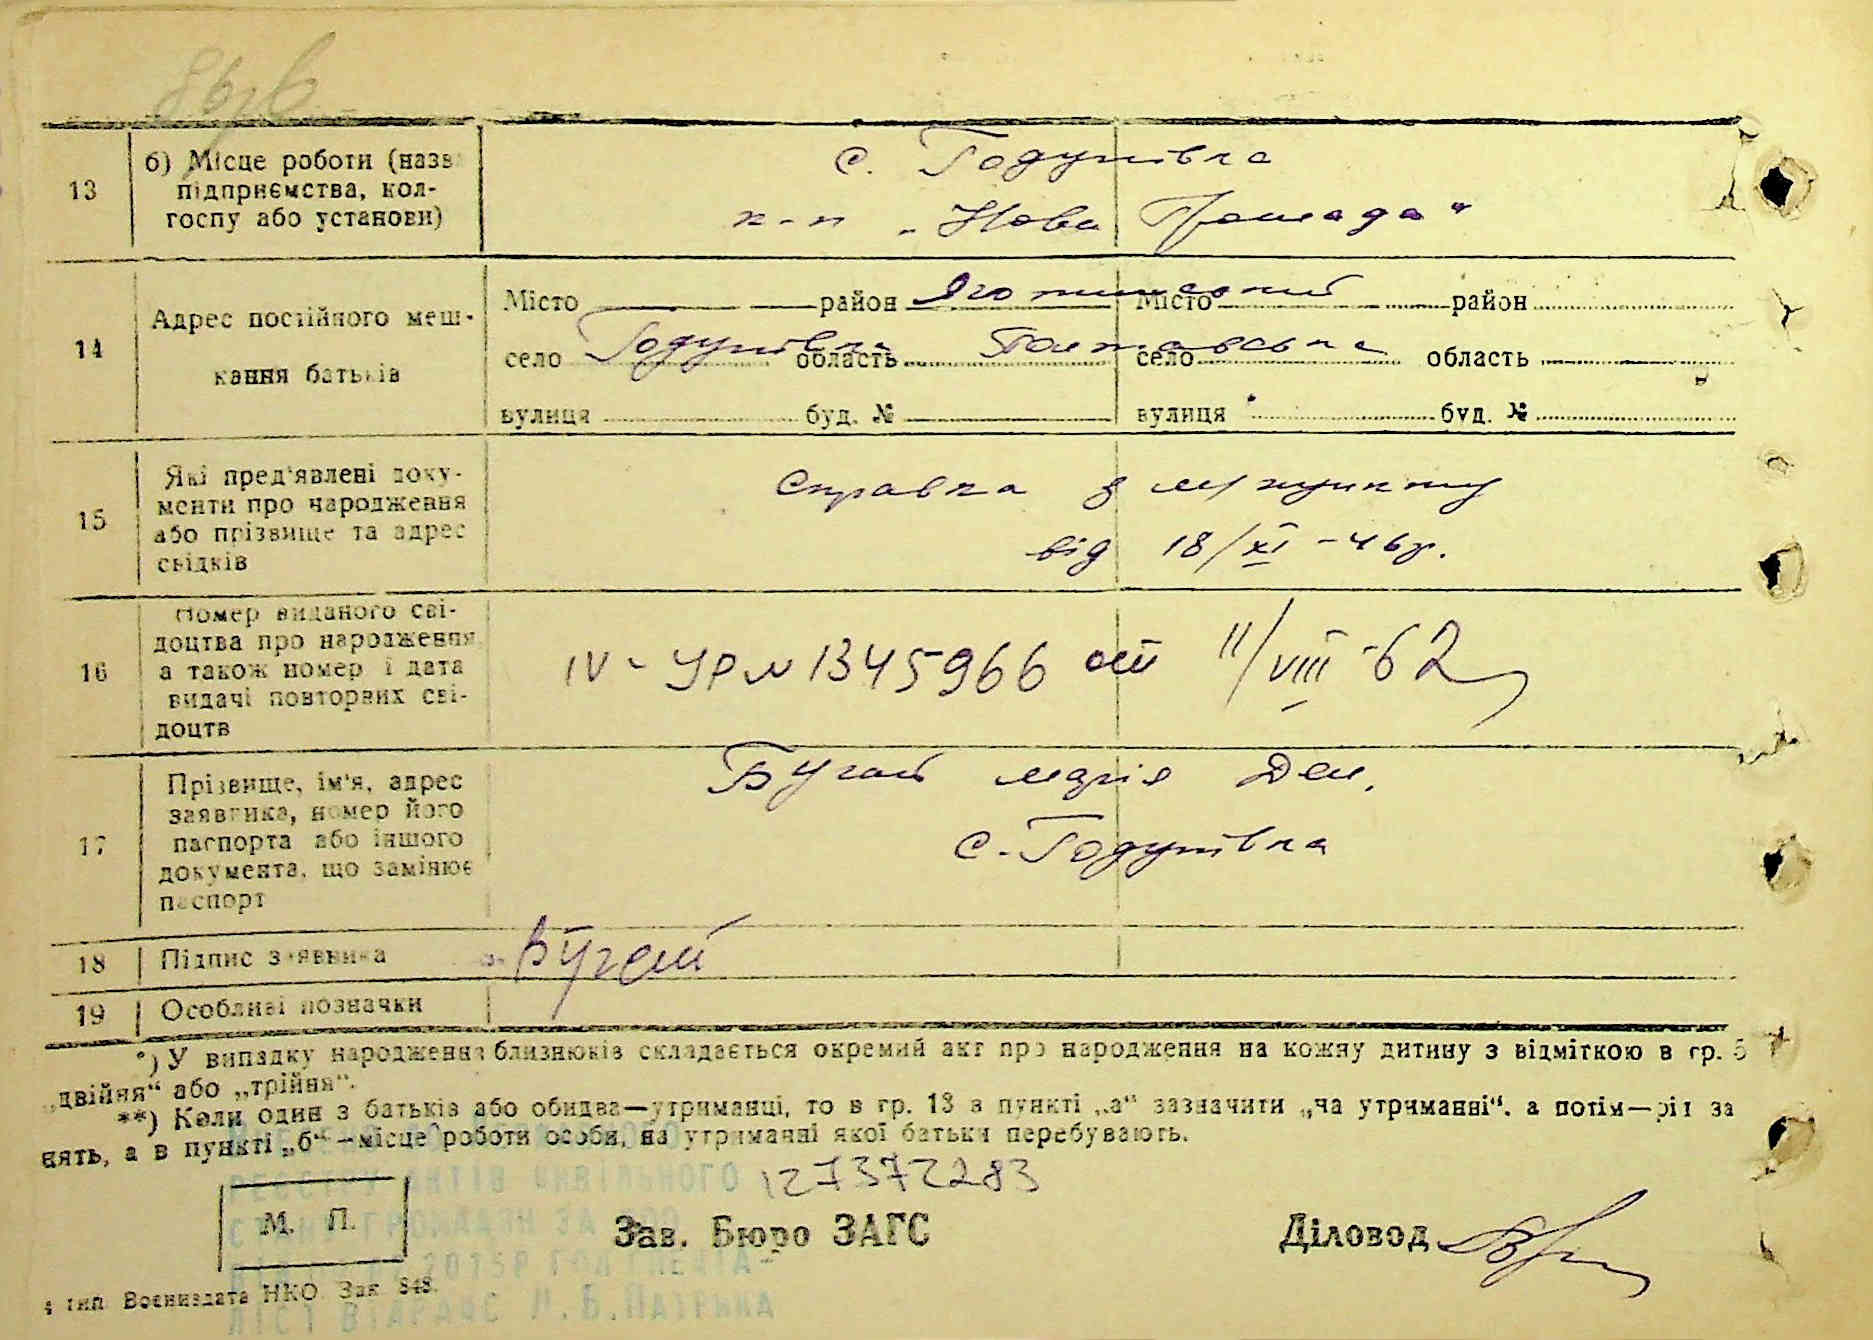 13
б) Місце роботи (назв
підприємства, кол-
госпу або установи)
с. Годунівка
к-п „Нова Громада"
14
Адрес постійного меш-
кання батьків
Місто район Яготинський Місто район
село Годунівка область Полтавська село область
вулиця буд. № вулиця буд. №
15
Які пред'явлені доку-
менти про народження
або прізвище та адрес
свідків
Справка з
від 18/XI-46р.
16
Номер виданого сві-
доцтва про народження
а також номер і дата
видачі повторних сві-
доцтв
IV-УР N 1345966 от 11/VIII-62
17
Прізвище, ім'я, адрес
заявника, номер його
паспорта або іншого
документа, що заміняє
паспорт
Бугай Марія Дем.
с. Годунівка
18
Підпис заявника
Бугай
19
Особливі позначки
*) У випадку народження близнюків складається окремий акт про народження на кожну дитину з відміткою в гр. 5
„двійня“ або „трійня“.
**) Коли один з батьків або обидва—утриманці, то в гр. 13 в пункті „а“ зазначити „на утриманні“, а потім—рід за
нять, а в пункті „б“—місце роботи особи, на утриманні якої батьки перебувають.
РЕЄСТРУ АКТІВ ЦИВІЛЬНОГО
127372283
М. П.
Зав. Бюро ЗАГС
Діловод
СТАНУ ГРОМАДЯН ЗА
2015Р
4 тип. Воєниздата НКО Зак 848.